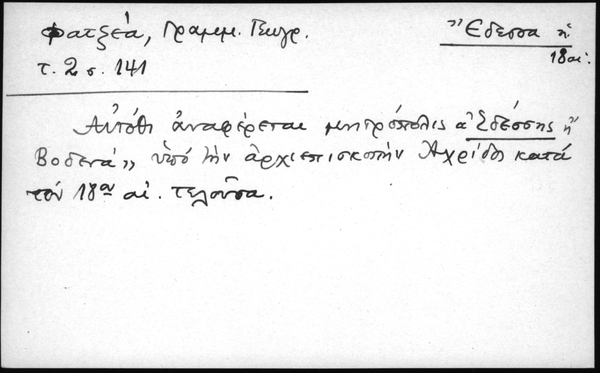 Φατζεά, Γραμμ. Γεωγρ.
τ. 2 σ. 141
Ἔδεσσα ἡ
18 αἰ.
Αὐτόθι ἀναφέρεται μητρόπολις "Ἐδέσσης ἢ
Βοδενά" ὑπό τήν ἀρχιεπισκοπήν Ἀχρίδος κατά
τόν 18ον αἰ. τελοῦσα.